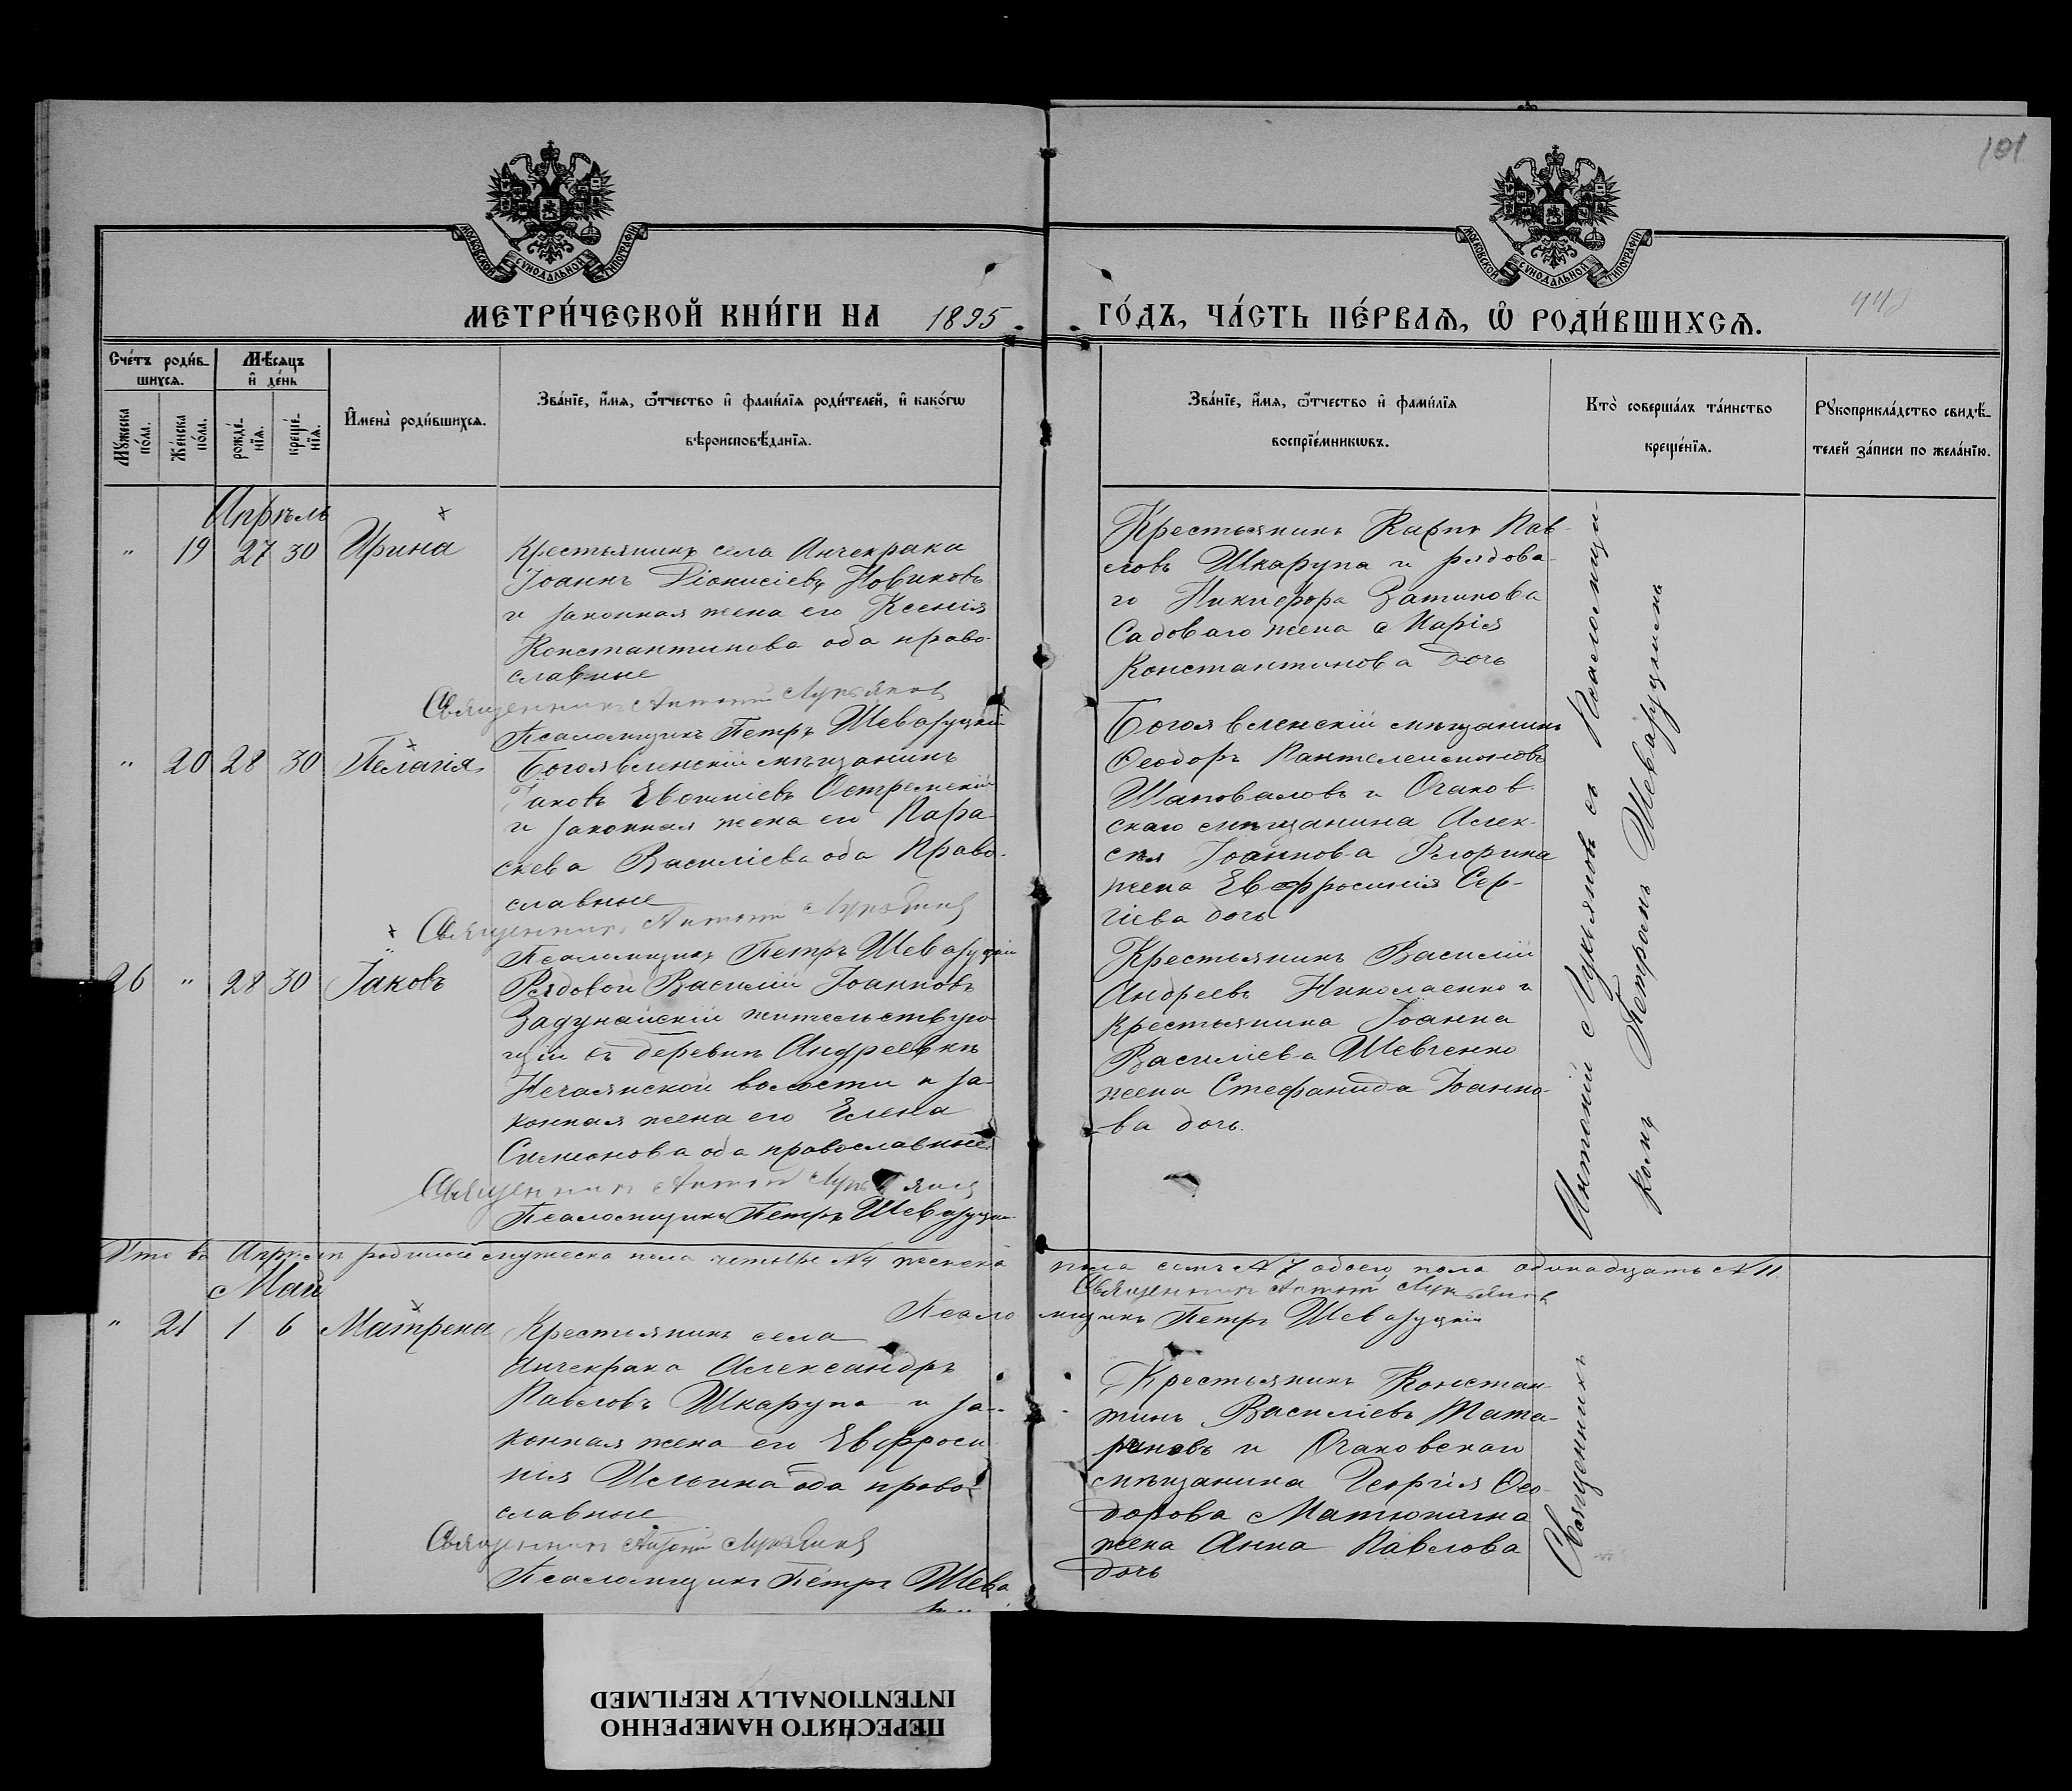 101
МОСКОВСКОЙ СѴНОДАЛЬНОЙ ТИПОГРАФІИ
МОСКОВСКОЙ СѴНОДАЛЬНОЙ ТИПОГРАФІИ
МЕТРИ́ЧЕСКОЙ КНИ́ГИ НА 1895 ГО́ДЪ, ЧА́СТЬ ПЕ́РВАѦ, Ѡ҆ РОДИ́ВШИХСѦ.
Сче́тъ роди́в-
шихсѧ.
Мѣ́сѧцъ
и҆ де́нь
Мꙋ́жеска
по́ла.
Же́нска
по́ла.
рожде́-
нїѧ.
креще́-
нїѧ.
И҆мена̀ роди́вшихсѧ.
Зва́нїе, и҆́мѧ, ѻ҆́тчество и҆ фами́лїѧ роди́телей, и҆ како́гѡ
вѣроисповѣ́данїѧ.
Зва́нїе, и҆́мѧ, ѻ҆́тчество и҆ фами́лїѧ
воспрїе́мникѡвъ.
Кто̀ соверша́лъ та́инство
креще́нїѧ.
Рꙋкоприкла́дство свидѣ́-
телей за́писи по жела́нїю.
Апрѣль
" 19 27 30 Ирина
Крестьянинъ села Анчекрака
Іоаннъ Діонисіевъ Новиковъ
и законная жена его Ксенія
Константинова оба право-
славные
Священникъ Антоній Лукьяновъ
Псаломщикъ Петръ Шеваруцкій
Крестьянинъ Карпъ Пав-
ловъ Шкарупа и рядова-
го Никифора
Садоваго жена Марія
Константинова дочь
" 20 28 30 Пелагія
Богоявленскій мѣщанинъ
Іаковъ Евѳиміевъ
и законная жена его Пара-
скева Василіева оба право-
славные
Священникъ Антоній Лукьяновъ
Псаломщикъ Петръ Шеваруцкій
Богоявленскій мѣщанинъ
Ѳеодоръ Пантелеимоновъ
Шаповаловъ и Очаков-
скаго мѣщанина Алек-
сѣя Іоаннова Флорина
жена Евфросинія Сер-
гіева дочь
26 " 28 30 Іаковъ
Рядовой Василій Іоанновъ
Задунайскій жительствую-
щій въ деревнѣ Андреевкѣ
Нечаянской волости и за-
конная жена его Елена
Симеонова оба православные
Священникъ Антоній Лукьяновъ
Псаломщикъ Петръ Шеваруцкій
Крестьянинъ Василій
Андреевъ Николаенко и
крестьянина Іоанна
Василіева Шевченко
жена Стефанида Іоанно-
ва дочь.
Что въ Апрѣлѣ родилось мужеска пола четыре №4 женска пола семь №7 обоего пола одинадцать №11.
Священникъ Антоній Лукьяновъ
Псаломщикъ Петръ Шеваруцкій
Май
" 21 1 6 Матрена
Крестьянинъ села
Анчекрака Александръ
Павловъ Шкарупа и за-
конная жена его Евфроси-
нія Ильина оба право-
славные
Священникъ Антоній Лукьяновъ
Псаломщикъ Петръ Шева
Крестьянинъ Констан-
тинъ Василіевъ Тата-
риновъ и Очаковскаго
мѣщанина Георгія Ѳео-
дорова
жена Анна Павлова
дочь
Священникъ Антоній Лукьяновъ съ Псаломщи-
комъ Петромъ Шеваруцкимъ
ПЕРЕСНЯТО НАМЕРЕННО
INTENTIONALLY REFILMED